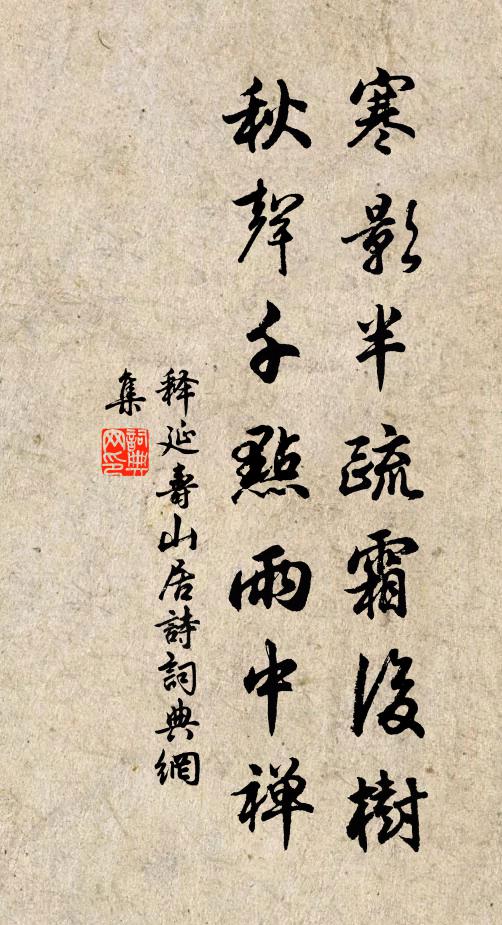 寒影半疏霜後樹
秋聲千點雨中禅
释延壽山居詩詞典網
集
詞典网印